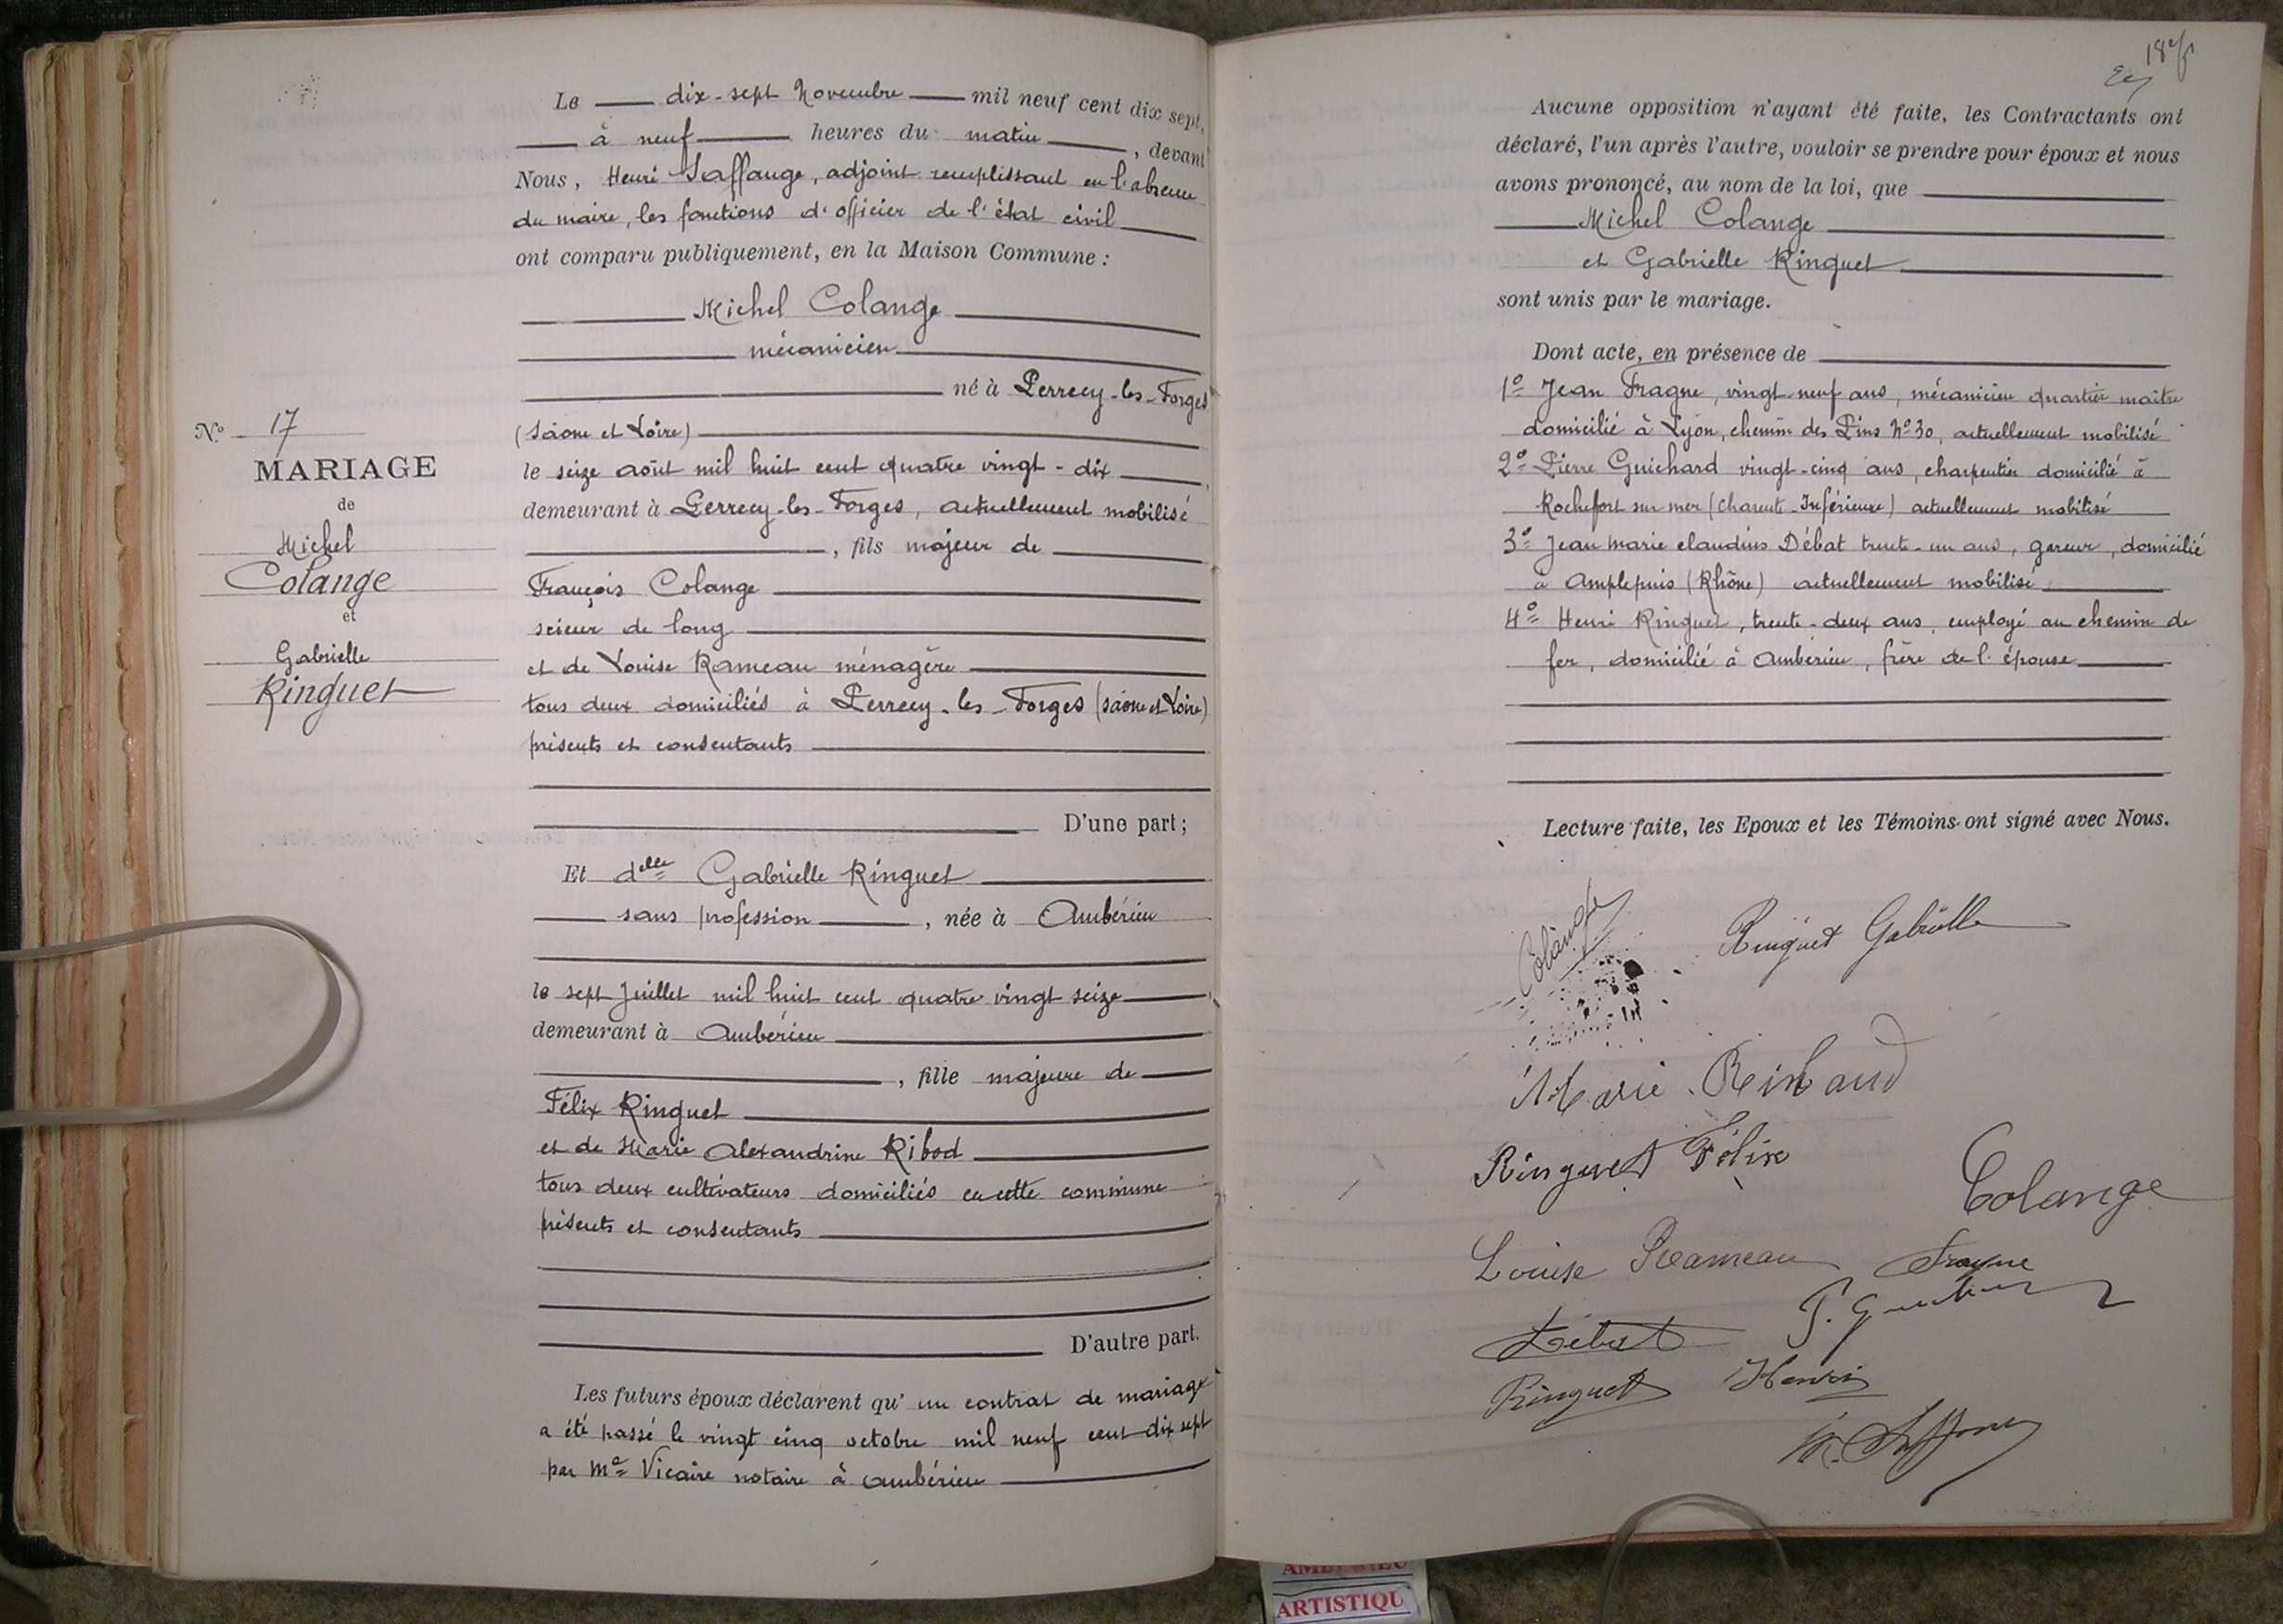 Le dix-sept Novembre mil neuf cent dix sept,
à neuf heures du matin, devant
Nous, Henri Saffange, adjoint remplissant en l'absence
du maire, les fonctions d'officier de l'état civil
ont comparu publiquement, en la Maison Commune :
Michel Colange
mécanicien
né à Perrecy-les-Forges
(Saône et Loire)
le seize août mil huit cent quatre vingt-dix
demeurant à Perrecy-les-Forges, actuellement mobilisé
, fils majeur de
François Colange
scieur de long
et de Louise Rameau ménagère
tous deux domiciliés à Perrecy-les-Forges (Saône et Loire)
présents et consentants
D'une part ;
Et delle Gabrielle Ringuet
sans profession, née à Ambérieu
le sept Juillet mil huit cent quatre vingt seize
demeurant à Ambérieu
, fille majeure de
Félix Ringuet
et de Marie Alexandrine Ribod
tous deux cultivateurs domiciliés en cette commune
présents et consentants
D'autre part.
Les futurs époux déclarent qu'un contrat de mariage
a été passé le vingt cinq octobre mil neuf cent dix sept
par Me Vicaire notaire à Ambérieu
No 17
MARIAGE
de
Michel
Colange
et
Gabrielle
Ringuet
Aucune opposition n'ayant été faite, les Contractants ont
déclaré, l'un après l'autre, vouloir se prendre pour époux et nous
avons prononcé, au nom de la loi, que
Michel Colange
et Gabrielle Ringuet
sont unis par le mariage.
Dont acte, en présence de
1o Jean Fragne, vingt-neuf ans, mécanicien quartier maître
domicilié à Lyon, chemin des Pins No 30, actuellement mobilisé
2o Pierre Guichard vingt-cinq ans, charpentier domicilié à
Rochefort sur mer (Charente Inférieure) actuellement mobilisé
3o Jean Marie Claudius Débat trente-un ans, gareur, domicilié
à Amplepuis (Rhône) actuellement mobilisé
4o Henri Ringuet, trente-deux ans, employé au chemin de
fer, domicilié à Ambérieu, frère de l'épouse
Lecture faite, les Epoux et les Témoins ont signé avec Nous.
Colange
Ringuet Gabrielle
Marie Ribaud
Ringuet Félix
Colange
Louise Rameau
Fragne
P. Guichard
Débat
Ringuet Henri
ARTISTIQU